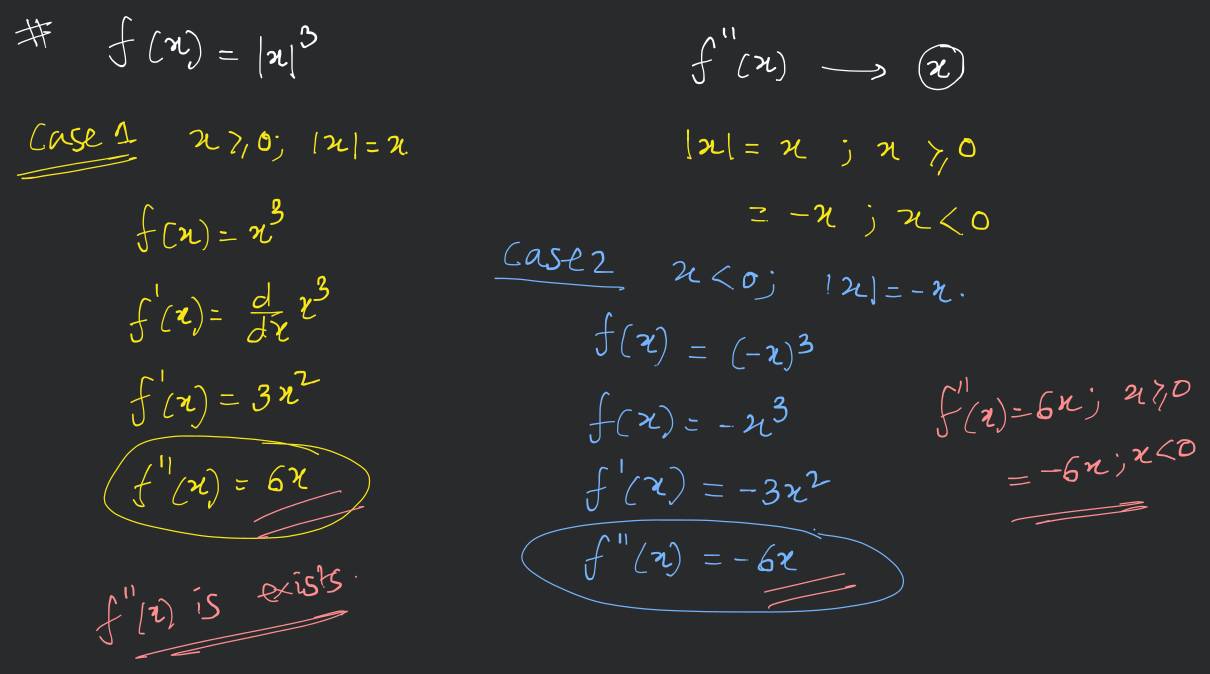 # f(x) = |x|³
f''(x) ⟶ ⓧ
Case 1 x ≥ 0; |x| = x
f(x) = x³
f'(x) = d/dx x³
f'(x) = 3x²
f''(x) = 6x
f''(x) is exists.
|x| = x ; x ≥ 0
= -x ; x < 0
Case 2 x < 0; |x| = -x.
f(x) = (-x)³
f(x) = -x³
f'(x) = -3x²
f''(x) = -6x
f''(x) = 6x; x ≥ 0
= -6x; x < 0